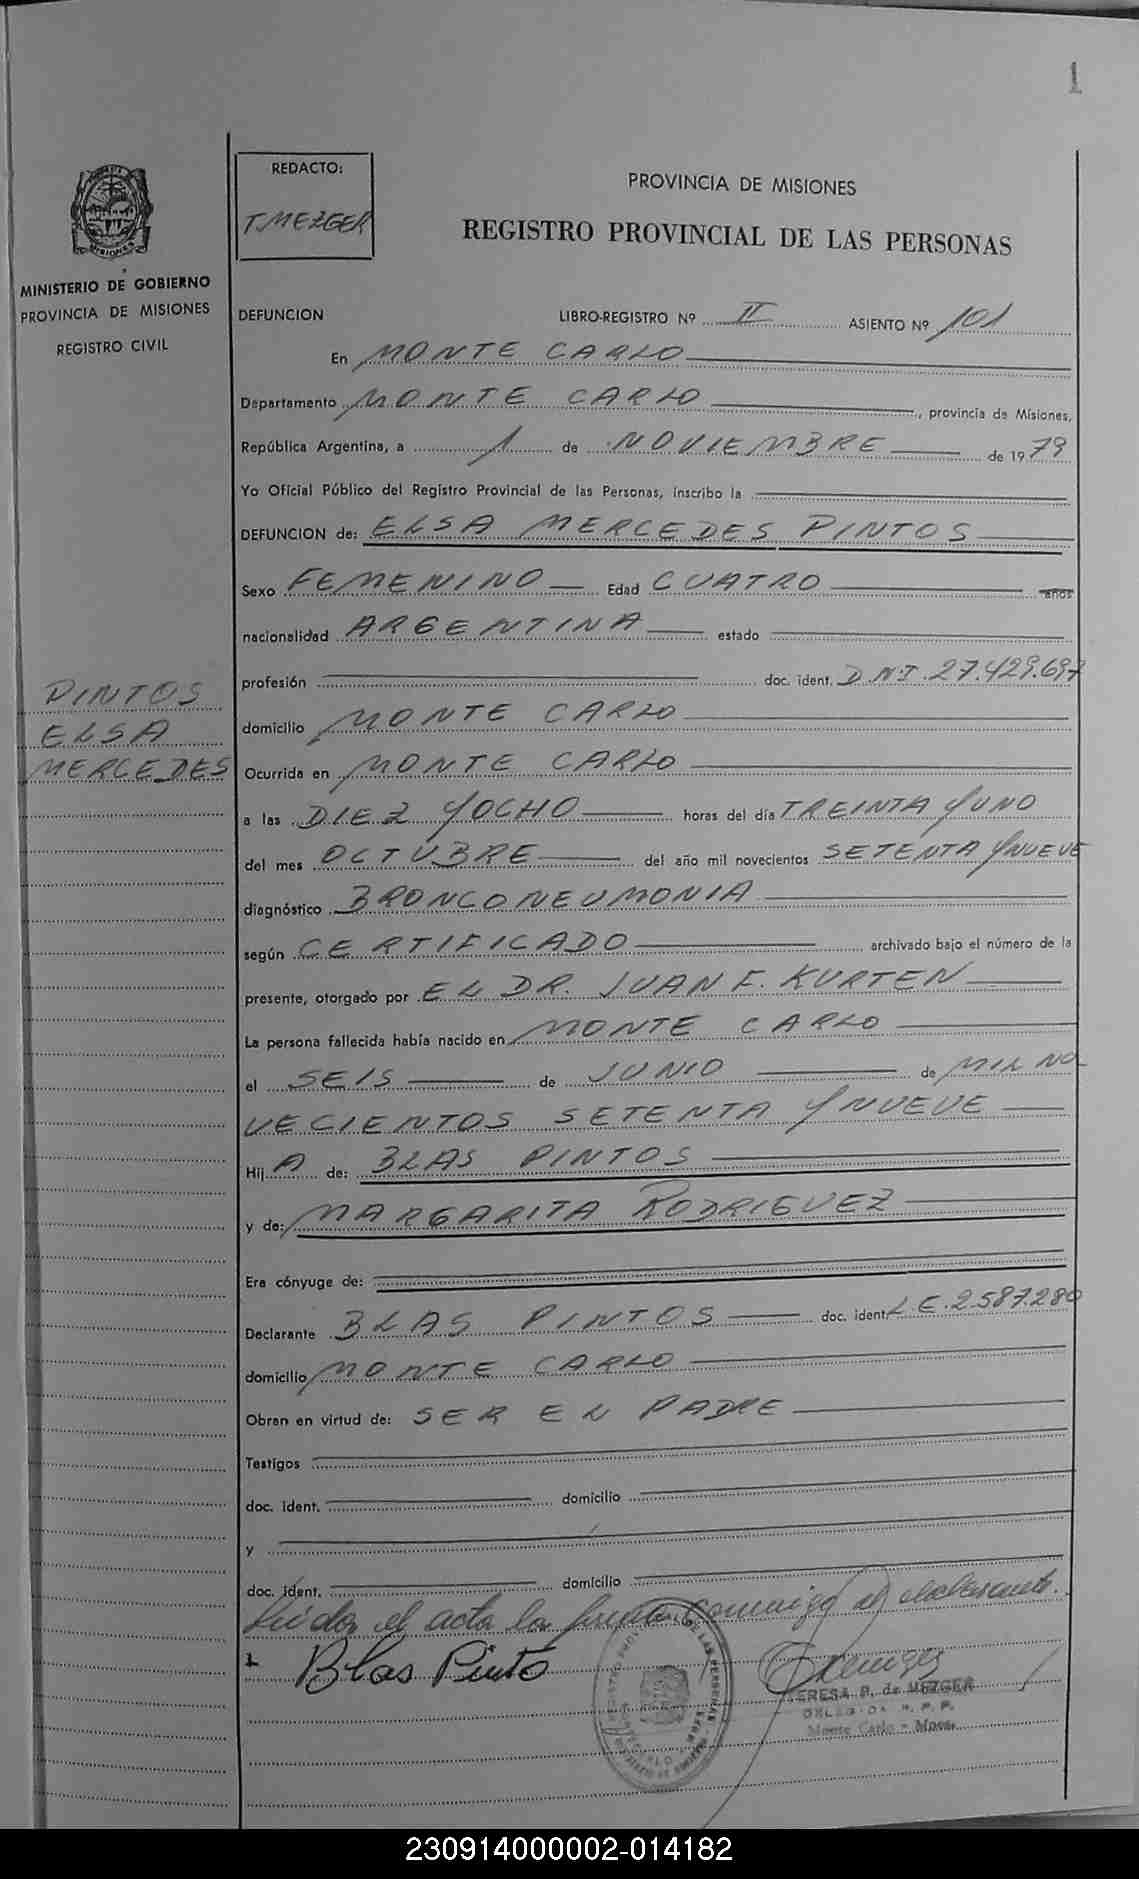 1
REDACTO:
T. MEZGER
PROVINCIA DE MISIONES
REGISTRO PROVINCIAL DE LAS PERSONAS
MINISTERIO DE GOBIERNO
PROVINCIA DE MISIONES
REGISTRO CIVIL
DEFUNCION LIBRO-REGISTRO Nº II ASIENTO Nº 101
En MONTE CARLO
Departamento MONTE CARLO, provincia de Misiones,
República Argentina, a 1 de NOVIEMBRE de 1979
Yo Oficial Público del Registro Provincial de las Personas, inscribo la
DEFUNCION de: ELSA MERCEDES PINTOS
Sexo FEMENINO Edad CUATRO años
nacionalidad ARGENTINA estado
profesión doc. ident. D.N.I. 27.429.697
PINTOS
ELSA
MERCEDES
domicilio MONTE CARLO
Ocurrida en MONTE CARLO
a las DIEZ Y OCHO horas del día TREINTA Y UNO
del mes OCTUBRE del año mil novecientos SETENTA Y NUEVE
diagnóstico BRONCONEUMONIA
según CERTIFICADO archivado bajo el número de la
presente, otorgado por EL DR. JUAN F. KURTEN
La persona fallecida había nacido en MONTE CARLO
el SEIS de JUNIO de MIL NO
VECIENTOS SETENTA Y NUEVE
Hij A de: BLAS PINTOS
y de: MARGARITA RODRIGUEZ
Era cónyuge de:
Declarante BLAS PINTOS doc. ident. L.E. 2.587.280
domicilio MONTE CARLO
Obran en virtud de: SER EL PADRE
Testigos
doc. ident. domicilio
y
doc. ident. domicilio
Leida el acta la firma conmigo el declarante.
Blas Pinto
TERESA P. de MEZGER
DELEGADA R. P. P.
Monte Carlo - Mnes.
230914000002-014182